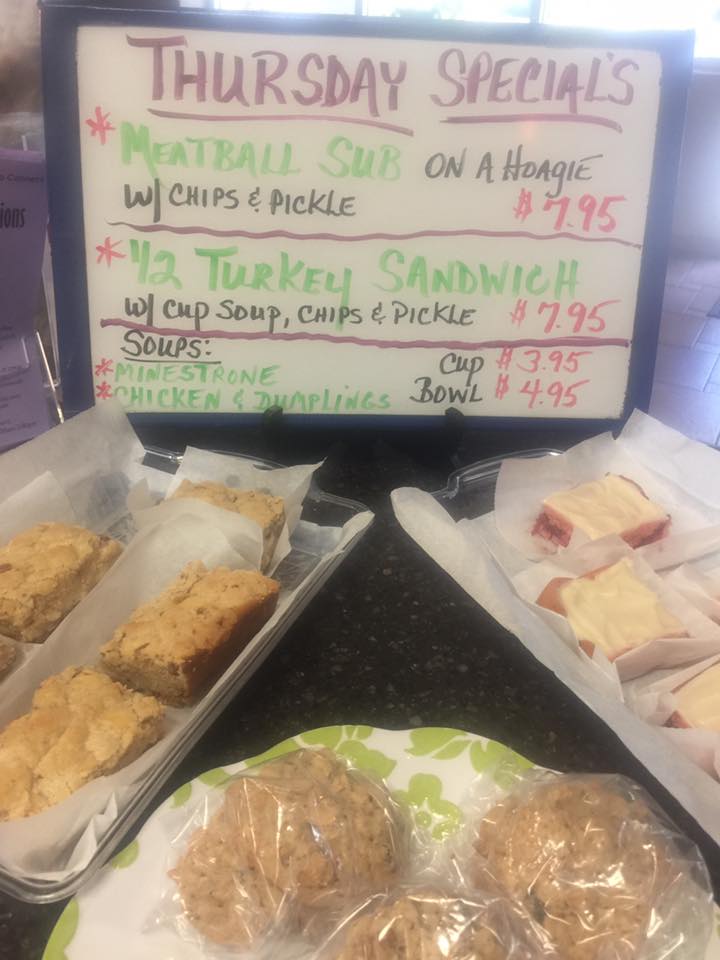 THURSDAY SPECIAL'S
* MEATBALL SUB ON A HOAGIE
W/ CHIPS & PICKLE $7.95
* 1/2 TURKEY SANDWICH
W/ CUP SOUP, CHIPS & PICKLE $7.95
SOUPS: CUP $3.95
* MINESTRONE BOWL $4.95
* CHICKEN & DUMPLINGS
ions